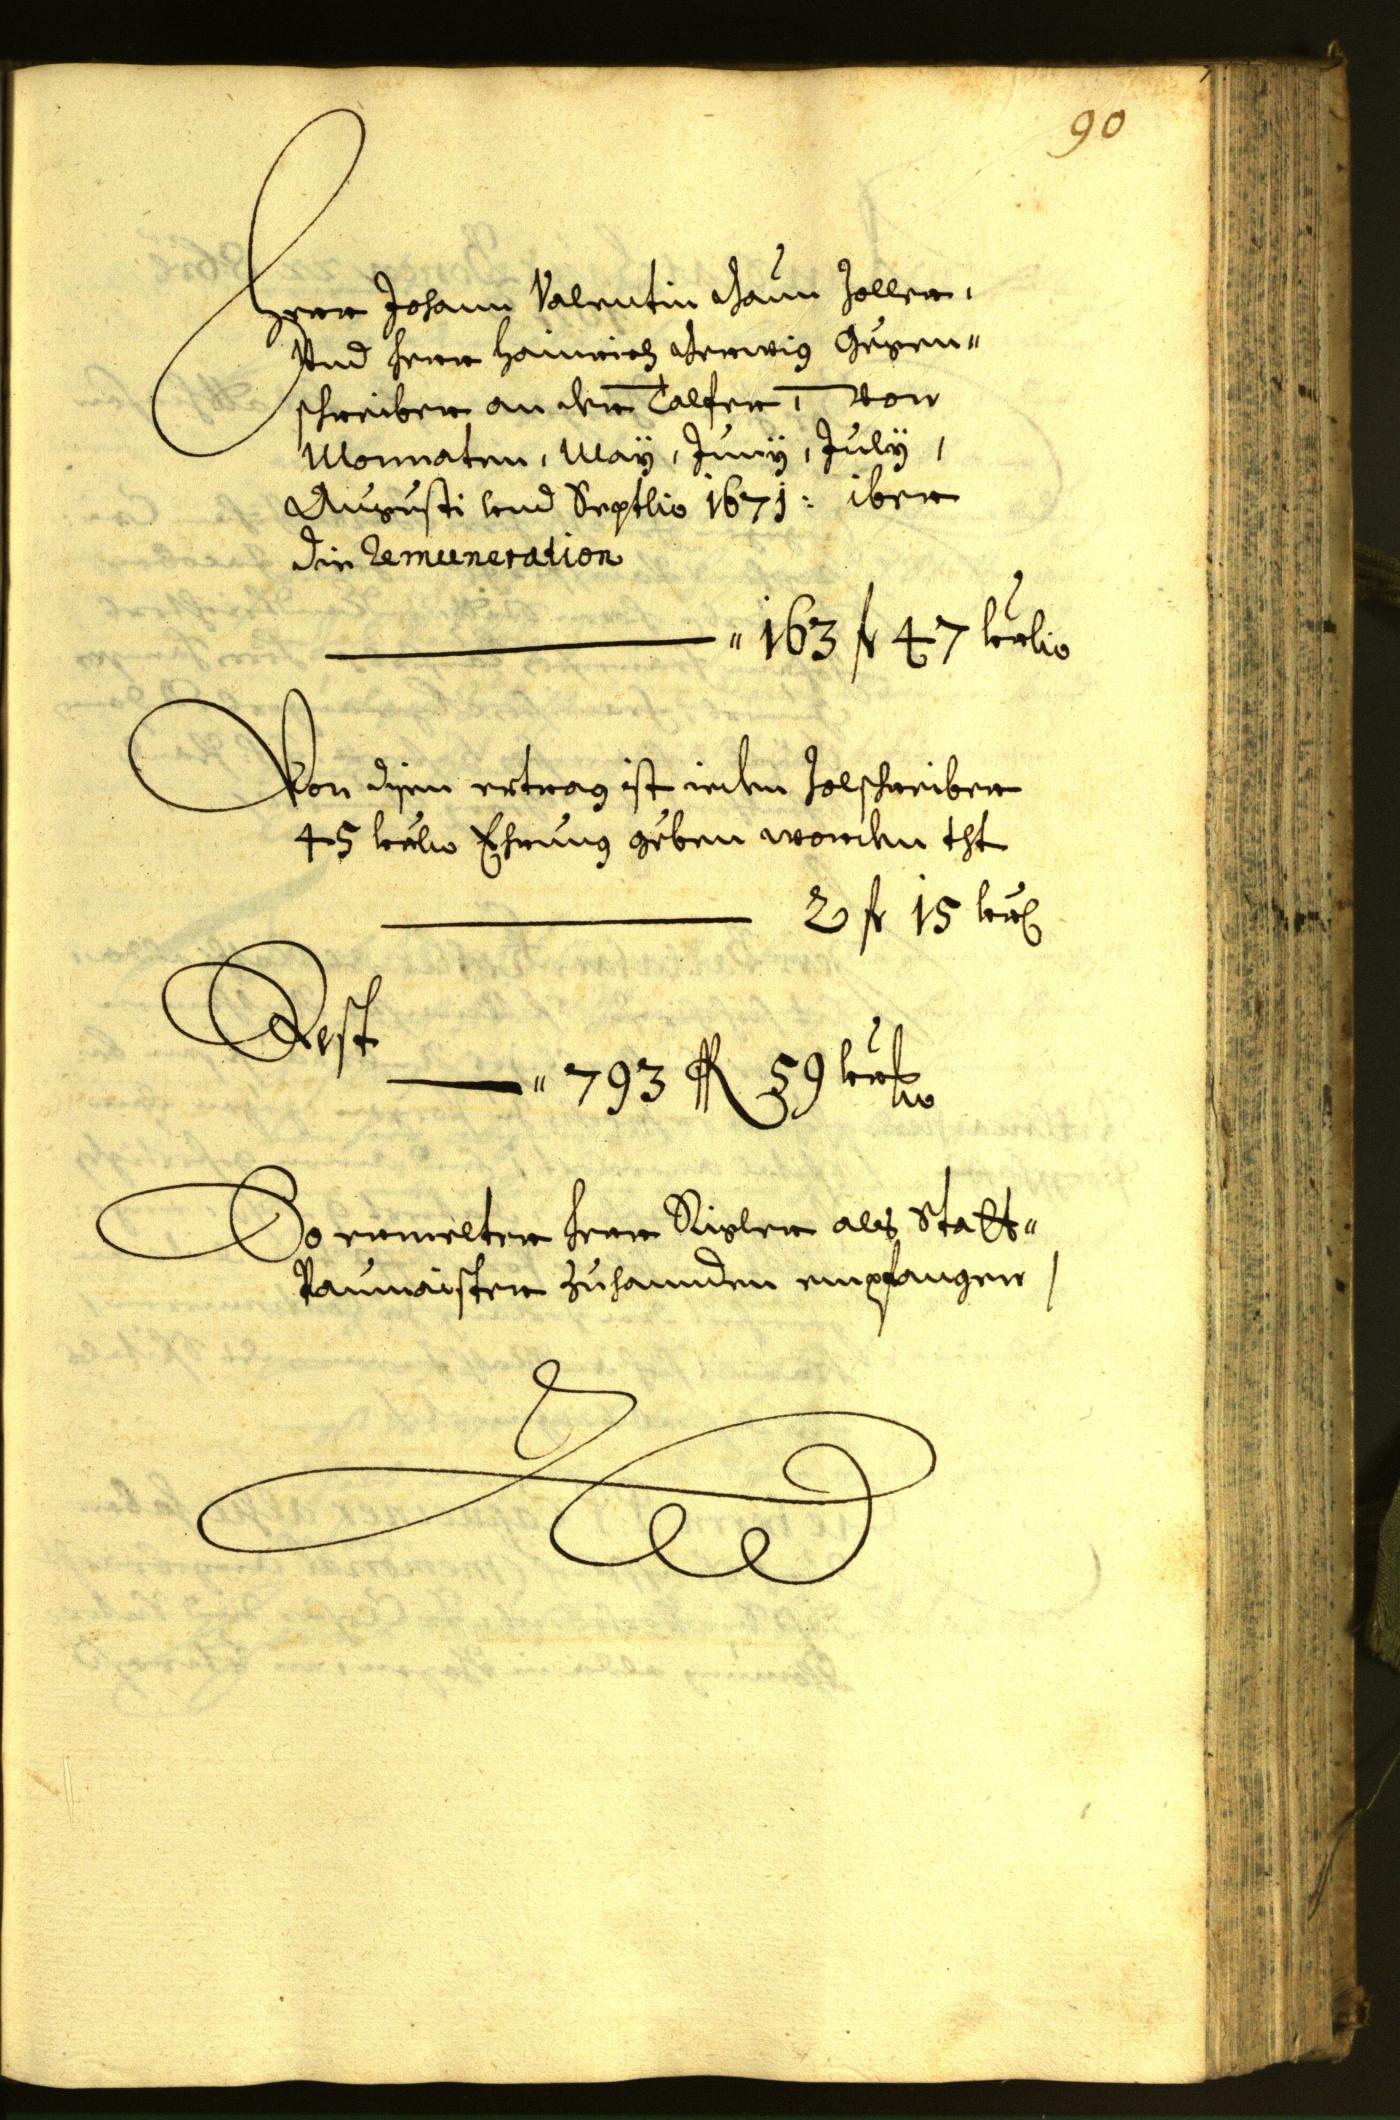 90
Herr Johann Valentin Haun Zoller,
Vnd Herr Hainrich Gegen"
schreiber an der Talfer, von
Monnaten, May, Juny, July,
Augusti vnd Septbo 1671: iber
die Remuneration
" 163 fr 47 kr
Von disem ertrag ist ieden Zolschreiber
45 kr Ehrung geben worden tht
2 fr 15 kr
Rest
" 793 fl 59 kr
So ermelter Herr als Statt"
Paumaister zuhannden empfangen /